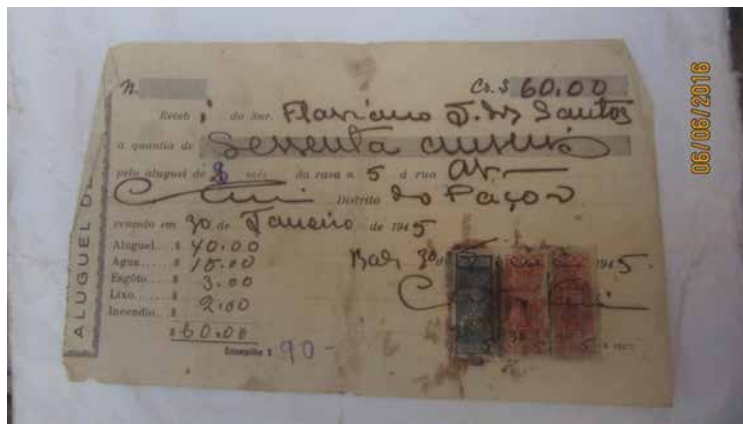 N. Cr. $ 60,00
Receb i do Snr. Flaviano J. dos Santos
a quantia de Sessenta cruzeiros
pelo aluguel de $ mês da casa n. 5 á rua
Distrito do Paço
vencido em 30 de Janeiro de 1945
Aluguel..... $ 40.00
Agua..... $ 15.00
Esgôto... $ 3.00
Lixo..... $ 2,00
Incendio.. $
$ 60.00
Estampilha $ 90-
30 d 1945.
ALUGUEL DE
06/06/2016